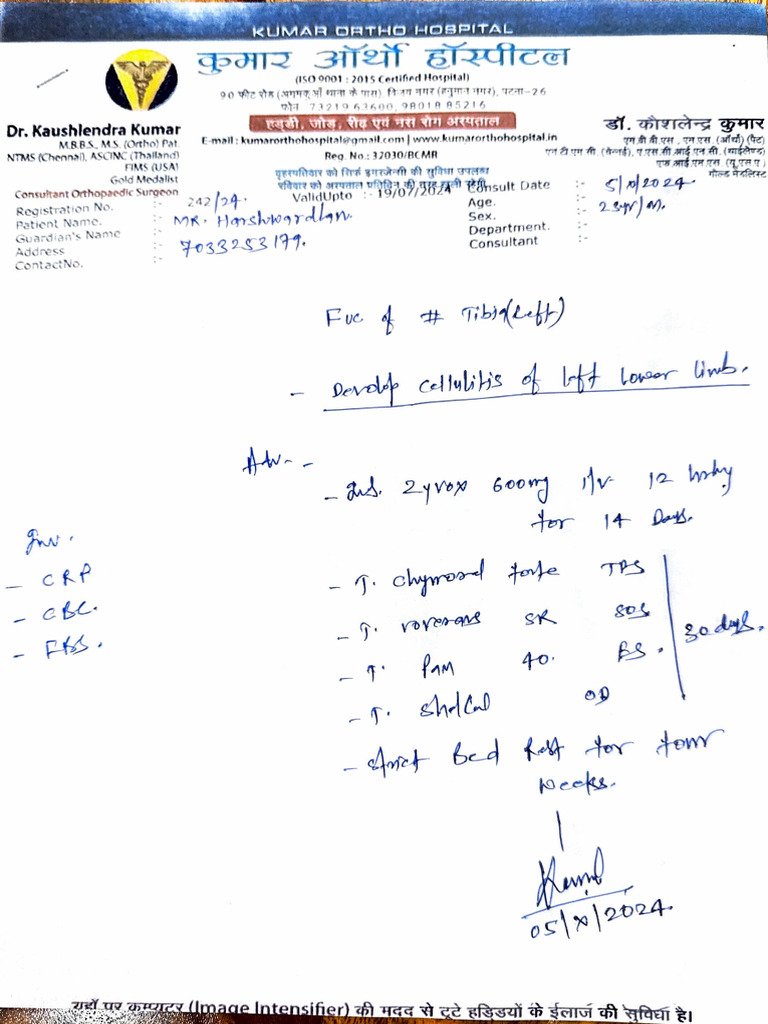 KUMAR ORTHO HOSPITAL
कुमार ऑर्थो हॉस्पीटल
(ISO 9001 : 2015 Certified Hospital)
90 फीट रोड (अगमकुआँ थाना के पास) विजय नगर (हनुमान नगर), पटना-26
फोन 7321963600, 9801885216
हड्डी, जोड़, रीढ़ एवं नस रोग अस्पताल
E-mail : kumarorthohospital@gmail.com | www.kumarorthohospital.in
Reg. No.: 37030/BCMR
Dr. Kaushlendra Kumar
M.B.B.S., M.S. (Ortho) Pat.
NTMS (Chennai), ASCINC (Thailand)
FIMS (USA)
Gold Medalist
Consultant Orthopaedic Surgeon
डॉ. कौशलेन्द्र कुमार
एम.बी.बी.एस., एम.एस. (ऑर्थो) (पैट)
एन.टी.एम.सी. (चेन्नई), ए.एस.सी.आई.एन.सी. (थाईलैण्ड)
एफ.आई.एम.एस. (यू.एस.ए.)
गोल्ड मेडलिस्ट
बृहस्पतिवार को सिर्फ इमरजेन्सी की सुविधा उपलब्ध
रविवार को अस्पताल प्रतिदिन की तरह खुली रहेगी
Registration No. :- 242/24.
ValidUpto :- 19/07/2024
Consult Date :- 5/X/2024
Patient Name. :- MR. Harshwardhan
Age. :- 23yr/M.
Guardian's Name :-
Sex. :-
Address :- 7033253179.
Department. :-
ContactNo. :-
Consultant :-
Fuc of # Tibia (Left)
- Develop cellulitis of left lower limb.
Adv. -
- Inj. Zyvox 600mg I/v 12 hrly
for 14 Days.
Inv.
- CRP
- CBC.
- FBS.
- T. chymoral forte TDS
- T. voveran SR SOS
- T. Pam 40. BS.
- T. Shelcal OD
30 days.
- Strict Bed Rest for four
weeks.
05/X/2024.
यहाँ पर कम्प्यूटर (Image Intensifier) की मदद से टूटे हड्डियों के ईलाज की सुविधा है।